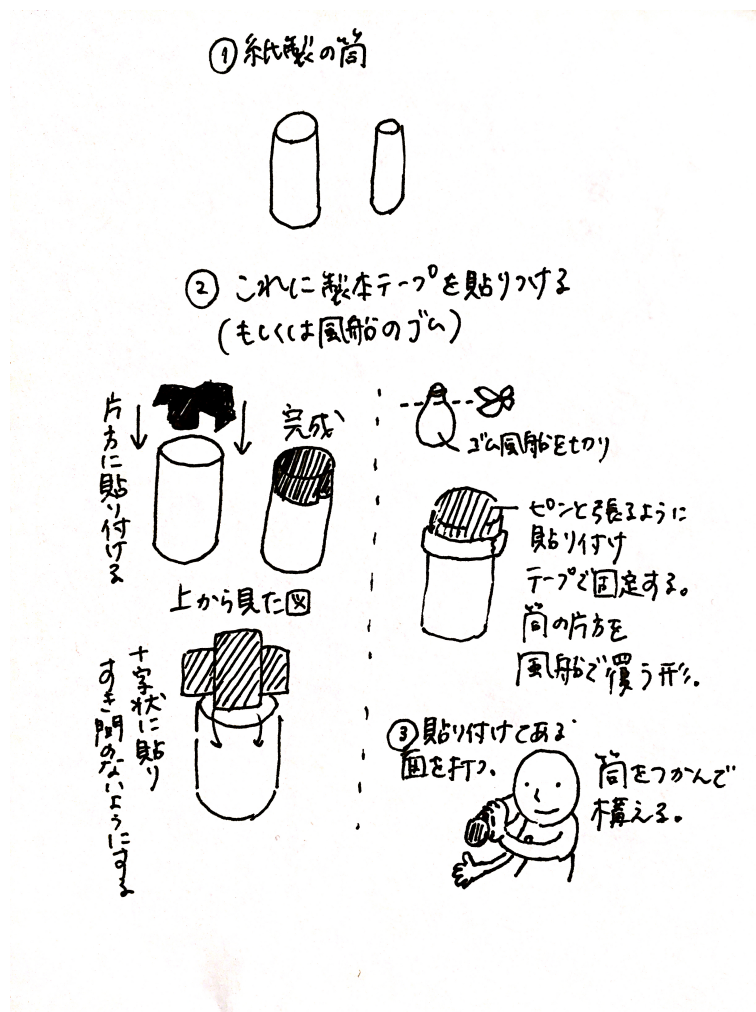 ① 紙製の筒
② これに製本テープを貼りつける
(もしくは風船のゴム)
片方に貼り付ける
完成
上から見た図
十字状に貼り
すき間のないようにする
ゴム風船を切り
ピンと張るように
貼り付け
テープで固定する。
筒の片方を
風船で覆う形。
③ 貼り付けてある
面を打つ。
筒をつかんで
構える。